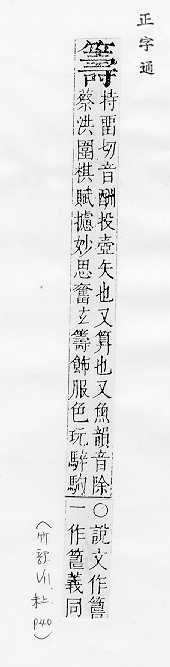 正字通
籌
持畱切音酬投壺矢也又算也又魚韻音除
蔡洪圍棋賦攄妙思奮玄籌飾服色玩騂駒
○說文作
一作義同
(竹部 p40)